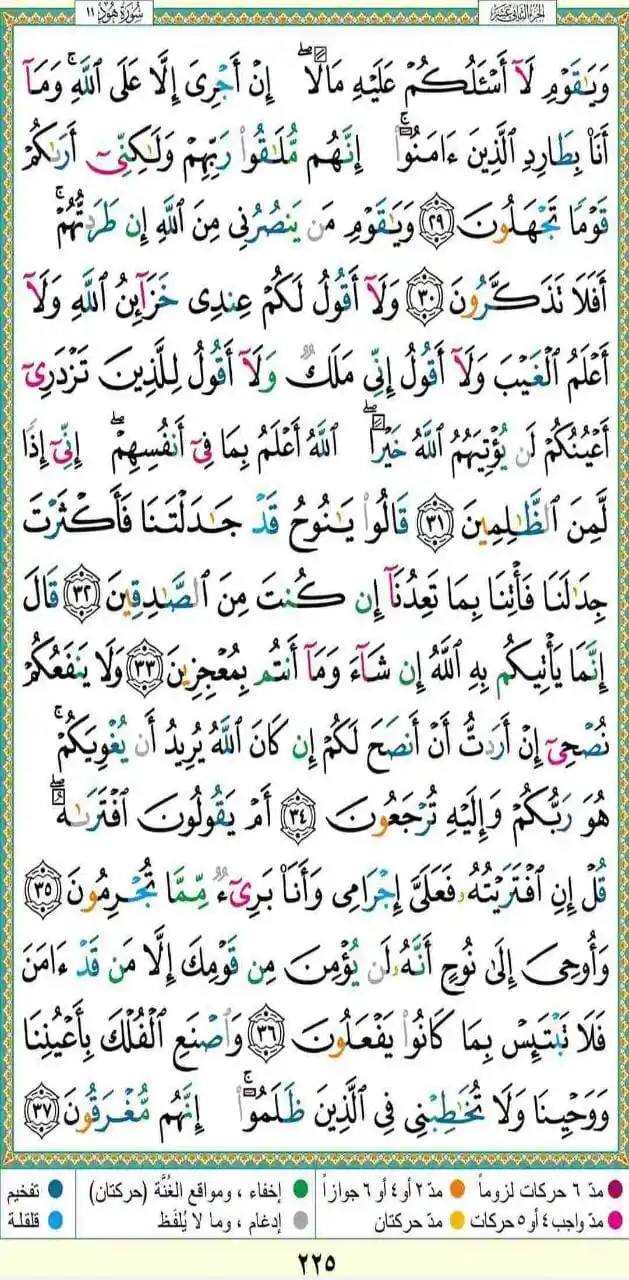 الجزء الثاني عشر
سُورَةُ هُودٍ ١١
وَيَٰقَوْمِ لَآ أَسْـَٔلُكُمْ عَلَيْهِ مَالًا ۖ إِنْ أَجْرِىَ إِلَّا عَلَى ٱللَّهِ ۚ وَمَآ
أَنَا۠ بِطَارِدِ ٱلَّذِينَ ءَامَنُوٓا۟ ۚ إِنَّهُم مُّلَٰقُوا۟ رَبِّهِمْ وَلَٰكِنِّىٓ أَرَىٰكُمْ
قَوْمًا تَجْهَلُونَ ٢٩ وَيَٰقَوْمِ مَن يَنصُرُنِى مِنَ ٱللَّهِ إِن طَرَدتُّهُمْ ۚ
أَفَلَا تَذَكَّرُونَ ٣٠ وَلَآ أَقُولُ لَكُمْ عِندِى خَزَآئِنُ ٱللَّهِ وَلَآ
أَعْلَمُ ٱلْغَيْبَ وَلَآ أَقُولُ إِنِّى مَلَكٌ وَلَآ أَقُولُ لِلَّذِينَ تَزْدَرِىٓ
أَعْيُنُكُمْ لَن يُؤْتِيَهُمُ ٱللَّهُ خَيْرًا ۖ ٱللَّهُ أَعْلَمُ بِمَا فِىٓ أَنفُسِهِمْ ۖ إِنِّىٓ إِذًا
لَّمِنَ ٱلظَّٰلِمِينَ ٣١ قَالُوا۟ يَٰنُوحُ قَدْ جَٰدَلْتَنَا فَأَكْثَرْتَ
جِدَٰلَنَا فَأْتِنَا بِمَا تَعِدُنَآ إِن كُنتَ مِنَ ٱلصَّٰدِقِينَ ٣٢ قَالَ
إِنَّمَا يَأْتِيكُم بِهِ ٱللَّهُ إِن شَآءَ وَمَآ أَنتُم بِمُعْجِزِينَ ٣٣ وَلَا يَنفَعُكُمْ
نُصْحِىٓ إِنْ أَرَدتُّ أَنْ أَنصَحَ لَكُمْ إِن كَانَ ٱللَّهُ يُرِيدُ أَن يُغْوِيَكُمْ ۚ
هُوَ رَبُّكُمْ وَإِلَيْهِ تُرْجَعُونَ ٣٤ أَمْ يَقُولُونَ ٱفْتَرَىٰهُ ۖ
قُلْ إِنِ ٱفْتَرَيْتُهُۥ فَعَلَىَّ إِجْرَامِى وَأَنَا۠ بَرِىٓءٌ مِّمَّا تُجْرِمُونَ ٣٥
وَأُوحِىَ إِلَىٰ نُوحٍ أَنَّهُۥ لَن يُؤْمِنَ مِن قَوْمِكَ إِلَّا مَن قَدْ ءَامَنَ
فَلَا تَبْتَئِسْ بِمَا كَانُوا۟ يَفْعَلُونَ ٣٦ وَٱصْنَعِ ٱلْفُلْكَ بِأَعْيُنِنَا
وَوَحْيِنَا وَلَا تُخَٰطِبْنِى فِى ٱلَّذِينَ ظَلَمُوٓا۟ ۚ إِنَّهُم مُّغْرَقُونَ ٣٧
مدّ ٦ حركات لزوماً مدّ ٢ أو ٤ أو ٦ جوازاً إخفاء ، ومواقع الغُنَّة (حركتان) تفخيم
مدّ واجب ٤ أو ٥ حركات مدّ حركتان إدغام ، وما لا يُلفَظ قلقلة
٢٢٥